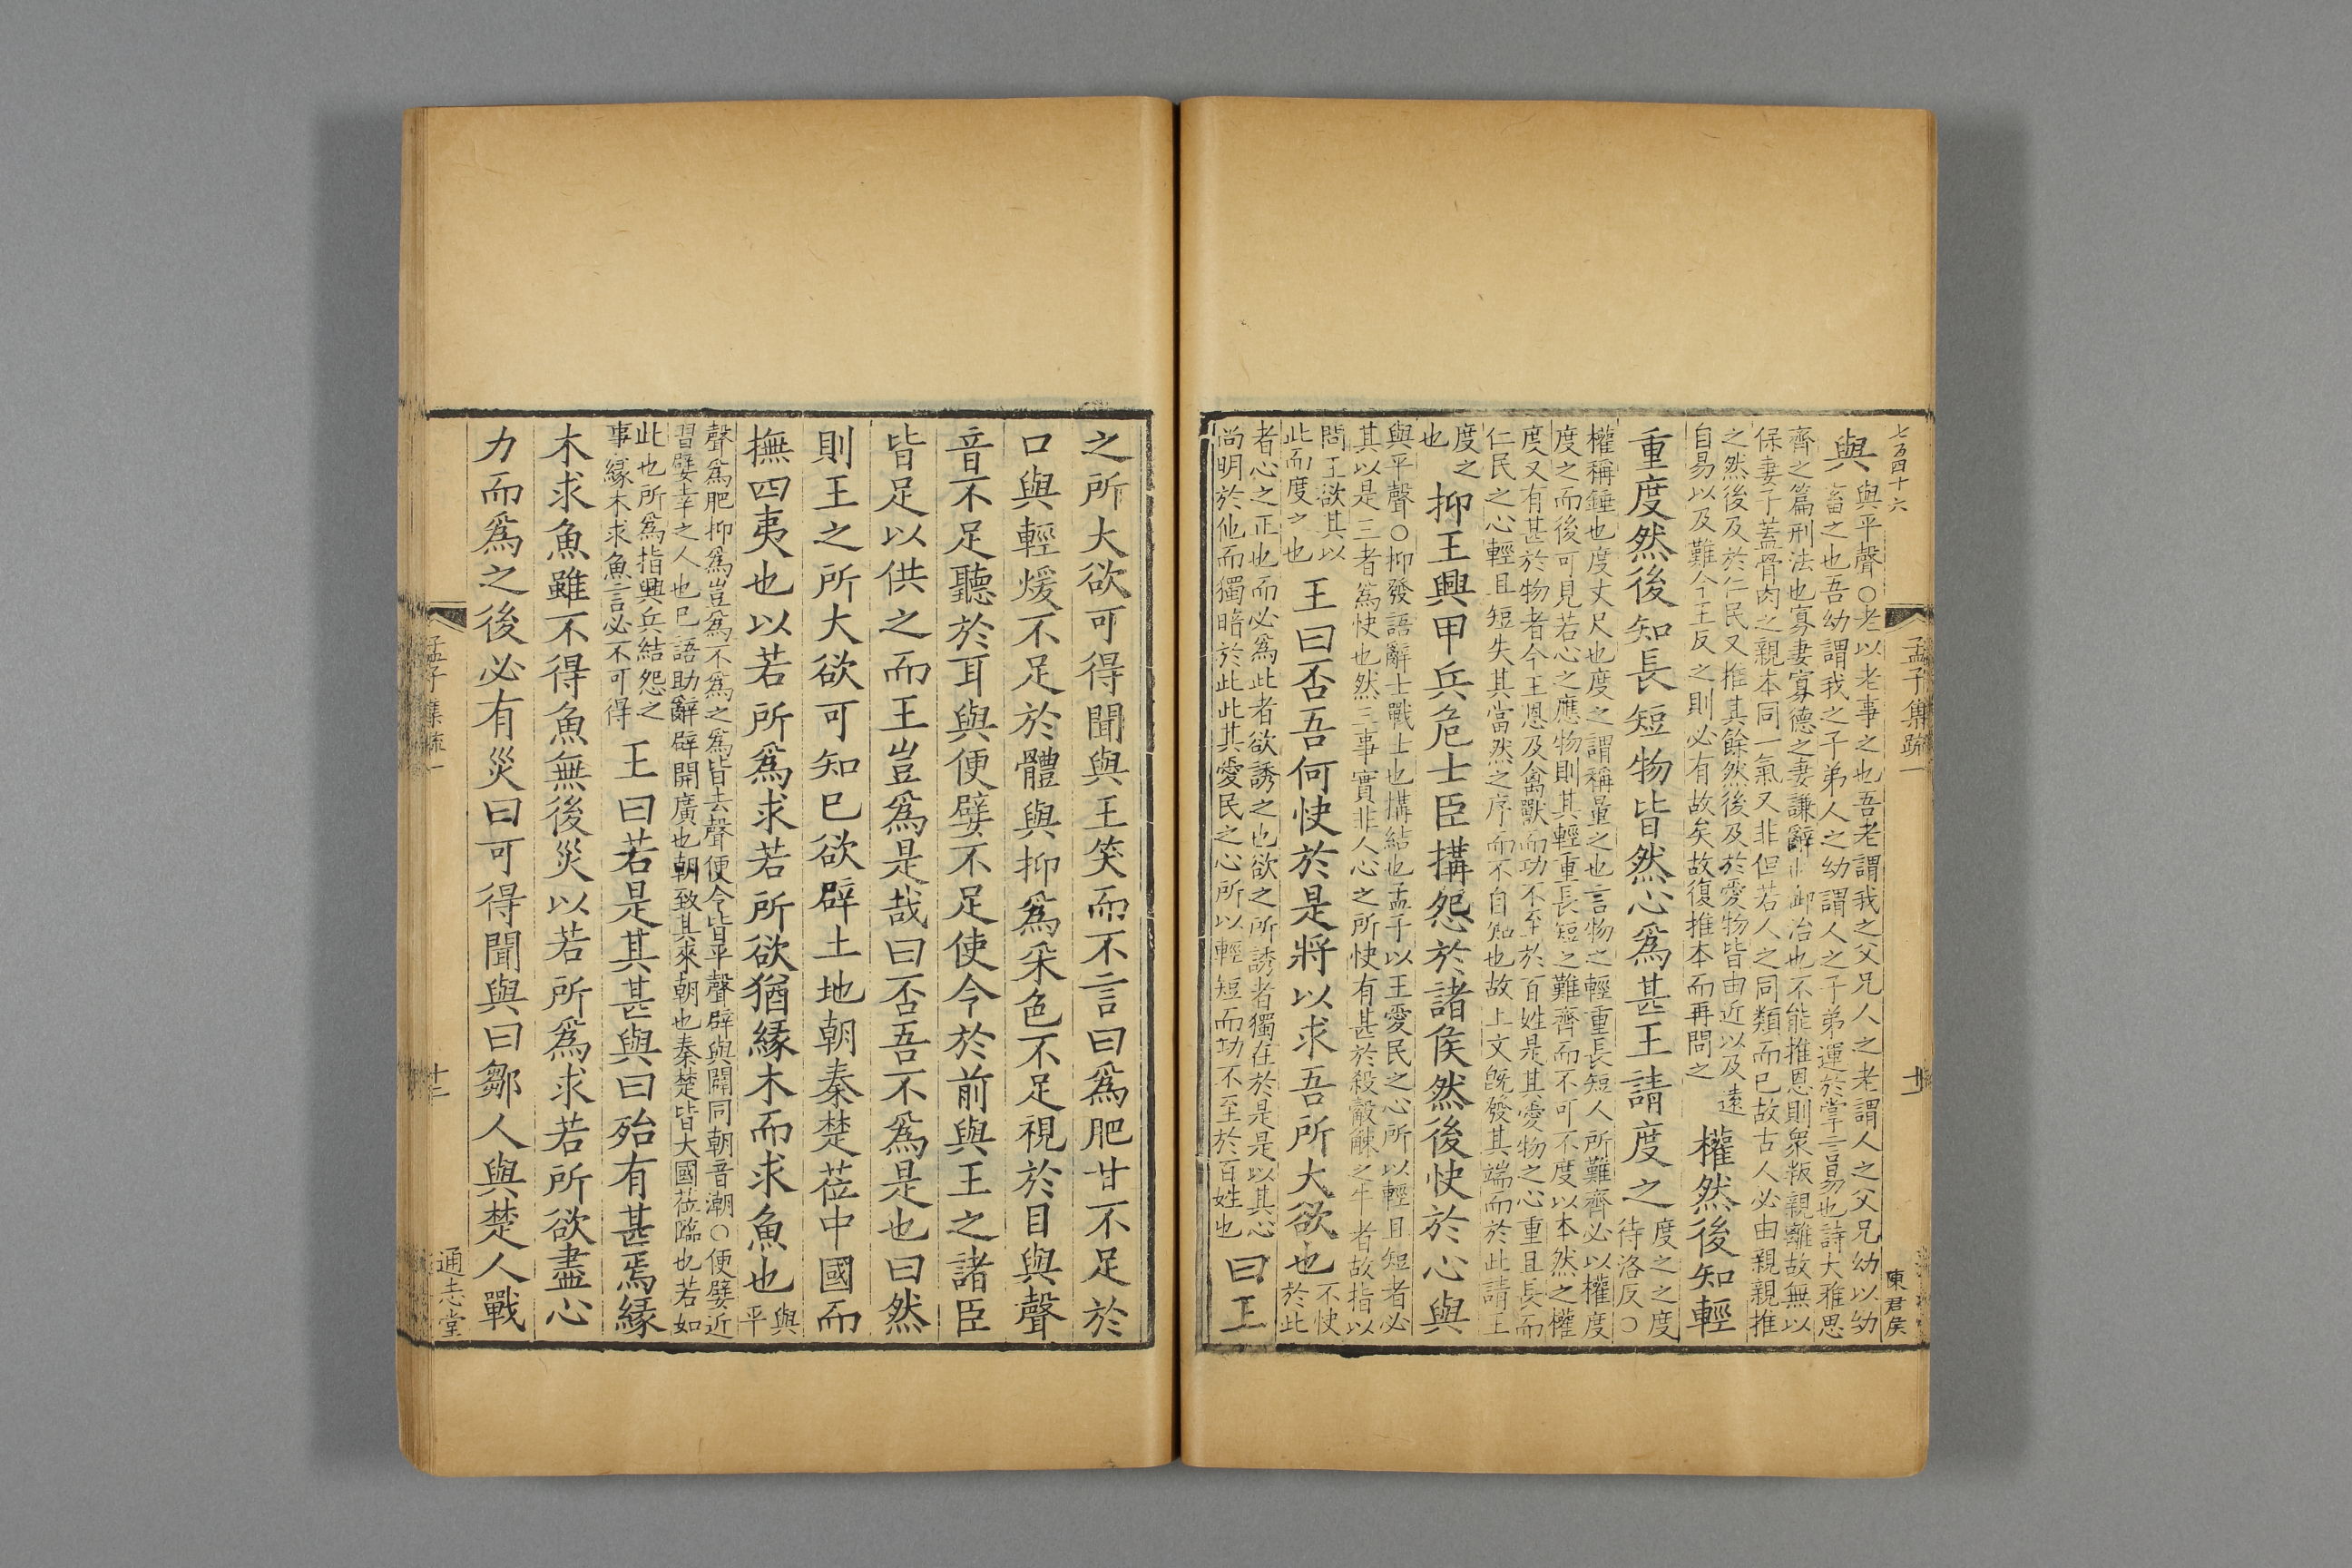 七百四十六
孟子集疏一
十一
陳君侯
與
與平聲○老以老事之也吾老謂我之父兄人之老謂人之父兄幼以幼
畜之也吾幼謂我之子弟人之幼謂人之子弟運於掌言易也詩大雅思
齊之篇刑法也寡妻寡德之妻謙辭也御治也不能推恩則衆叛親離故無以
保妻子蓋骨肉之親本同一氣又非但若人之同類而已故古人必由親親推
之然後及於仁民又推其餘然後及於愛物皆由近以及遠
自易以及難今王反之則必有故矣故復推本而再問之
權然後知輕
重度然後知長短物皆然心爲甚王請度之
度之之度
待洛反○
權稱錘也度丈尺也度之謂稱量之也言物之輕重長短人所難齊必以權度
度之而後可見若心之應物則其輕重長短之難齊而不可不度以本然之權
度又有甚於物者今王恩及禽獸而功不至於百姓是其愛物之心重且長而
仁民之心輕且短失其當然之序而不自知也故上文旣發其端而於此請王
度之
也
抑王興甲兵危士臣搆怨於諸侯然後快於心與
與平聲○抑發語辭士戰士也搆結也孟子以王愛民之心所以輕且短者必
其以是三者爲快也然三事實非人心之所快有甚於殺觳觫之牛者故指以
問王欲其以
此而度之也
王曰否吾何快於是將以求吾所大欲也
不快
於此
者心之正也而必爲此者欲誘之也欲之所誘者獨在於是是以其心
尚明於他而獨暗於此此其愛民之心所以輕短而功不至於百姓也
曰王
之所大欲可得聞與王笑而不言曰爲肥甘不足於
口與輕煖不足於體與抑爲采色不足視於目與聲
音不足聽於耳與便嬖不足使令於前與王之諸臣
皆足以供之而王豈爲是哉曰否吾不爲是也曰然
則王之所大欲可知已欲辟土地朝秦楚莅中國而
撫四夷也以若所爲求若所欲猶緣木而求魚也
與
平
聲爲肥抑爲豈爲不爲之爲皆去聲便令皆平聲辟與闢同朝音潮○便嬖近
習嬖幸之人也已語助辭辟開廣也朝致其來朝也秦楚皆大國莅臨也若如
此也所爲指興兵結怨之
事緣木求魚言必不可得
王曰若是其甚與曰殆有甚焉緣
木求魚雖不得魚無後災以若所爲求若所欲盡心
力而爲之後必有災曰可得聞與曰鄒人與楚人戰
孟子集疏一
十二
通志堂